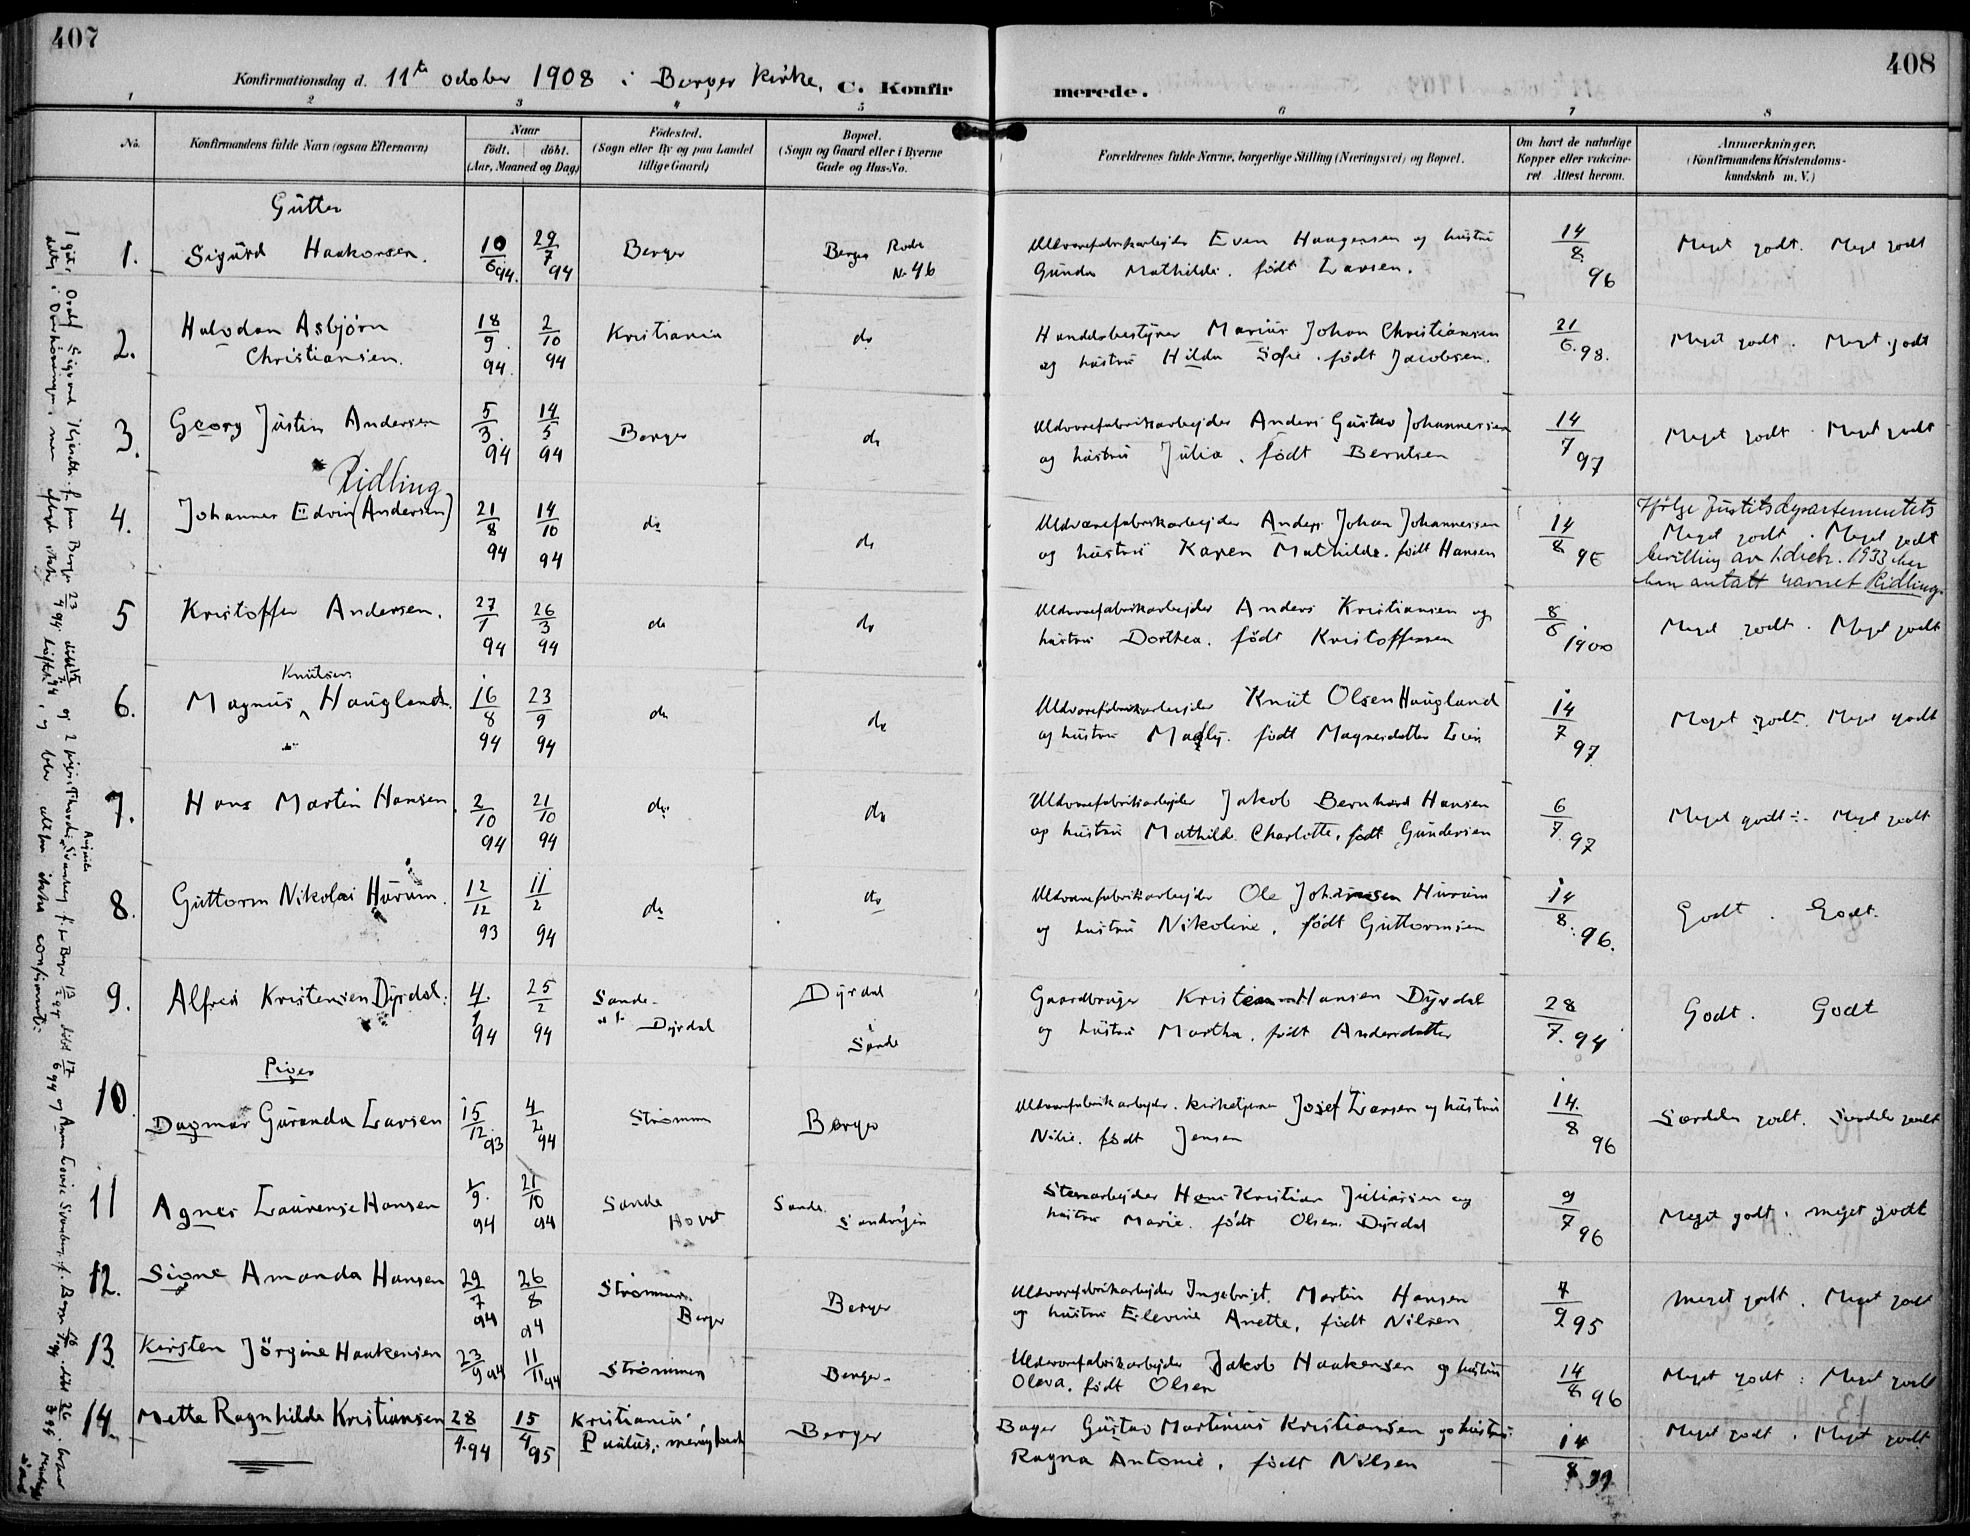 407
408
Konfirmationsdag d. 11te october 1908 i Berger Kirke. C. Konfir
merede.
1 2 3 4 5 6 7 8
No.
Konfirmandens fulde Navn (ogsaa Efternavn)
Naar
födt. döbt.
(Aar, Maaned og Dag)
Födested.
(Sogn eller By og paa Landet
tillige Gaard)
Bopæl.
(Sogn og Gaard eller i Byerne
Gade og Hus-No.
Forældrenes fulde Navne, borgerlige Stilling (Næringsvei) og Bopæl.
Om havt de naturlige
Kopper eller vakcine-
ret Attest herom.
Anmærkninger.
(Konfirmandens Kristendoms-
kundskab m. V.)
Gutter
1. Sigurd Haakonsen. 10/6 94. 29/7 94 Berger Berger Rode No 46
Uldvarefabrikarbejder Even Haagensen og hustru
Gunda Mathilde. født Larsen. 14/8 96 Meget godt. Meget godt
2. Halvdan Asbjørn
Christiansen. 18/9 94. 2/10 94 Kristiania do
Handelsbestyrer Marius Johan Christiansen
og hustru Hilda Sofie. født Jacobsen. 21/6. 98. Meget godt. Meget godt
3. Georg Justin Andersen 5/3. 94 14/5 94 Berger do
Uldvarefabrikarbejder Anders Gustav Johannessen
og hustru Julia. født Berntsen 14/7 97 Meget godt. Meget godt
Ridling
4. Johannes Edvin (Andersen) 21/8 94 14/10 94 do do
Uldvarefabrikarbejder Anders Johan Johannessen
og hustru Karen Mathilde. født Hansen 14/8 96
Ifølge Justitsdepartementets
Meget godt. Meget godt
bevilling av 1.decb. 1933 har
han antatt navnet Ridling.
5 Kristoffer Andersen. 27/1 94 26/3 94 do do
Uldvarefabrikarbejder Anders Kristiansen og
hustru Dorthea. født Kristoffersen 8/6 1900 Meget godt. Meget godt
Knutsen
6. Magnus ^ Haugland. 16/8 94 23/9 94 do do
Uldvarefabrikarbejder Knut Olsen Haugland
og hustru født Magnesdatter Lien 14/7 97. Meget godt. Meget godt
7. Hans Martin Hansen. 2/10 94 21/10 94 do. do
Uldvarefabrikarbejder Jakob Bernhard Hansen
og hustru Mathilde Charlotte, født Gundersen 6/7. 97 Meget godt ÷. Meget godt
8. Guttorm Nikolai Hurum. 12/12 93 11/2 94 do do
Uldvarefabrikarbejder Ole Johannesen Hurum
og hustru Nikoline, født Guttormsen 14/8. 96. Godt. Godt.
9. Alfred Kristensen Dyrdal. 4/1 94 25/2 94 Sande.
Dyrdal Dyrdal
Sande
Gaardbruger Kristen Hansen Dyrdal
og hustru Martha. født Andersdatter 28/7. 94 Godt. Godt
Piger
10. Dagmar Guranda Larsen 15/12. 93 4/2 94 Strømm Berger
Uldvarefabrikarbejder. kirketjener Josef Larsen og hustru
født Jensen 14./8 96 Særdeles godt. Særdeles godt
11 Agnes Laurense Hansen 1/9. 94 21/10 94 Sande
Hovet Sande.
Stenarbejder Hans Kristian Juliussen og
hustru Marie. født Olsen Dyrdal 9/7 96 Meget godt. meget godt
12. Signe Amanda Hansen 29/7 94 26/8 94 Strømmen.
Berger Berger
Uldvarefabrikarbejder Ingebrigt Martin Hansen
og hustru Elevine Anette, født Nilsen 7/9 95 meget godt. Meget godt
13. Kirsten Jørgine Haakensen 23/9 94 11/11 94 Strømmen Berger.
Uldvarefabrikarbejder Jakob Haakensen og hustru
Oleva. født Olsen 14/8 96 Meget godt. Meget godt
14. Mette Ragnhilda Kristiansen 28/9. 94 15/4 95 Kristiania.
Paulus. menighed Berger
Bager Gustav Martinius Kristiansen og hustru
Ragna Antonie. født Nilsen 14/8 99 Meget godt. Meget godt